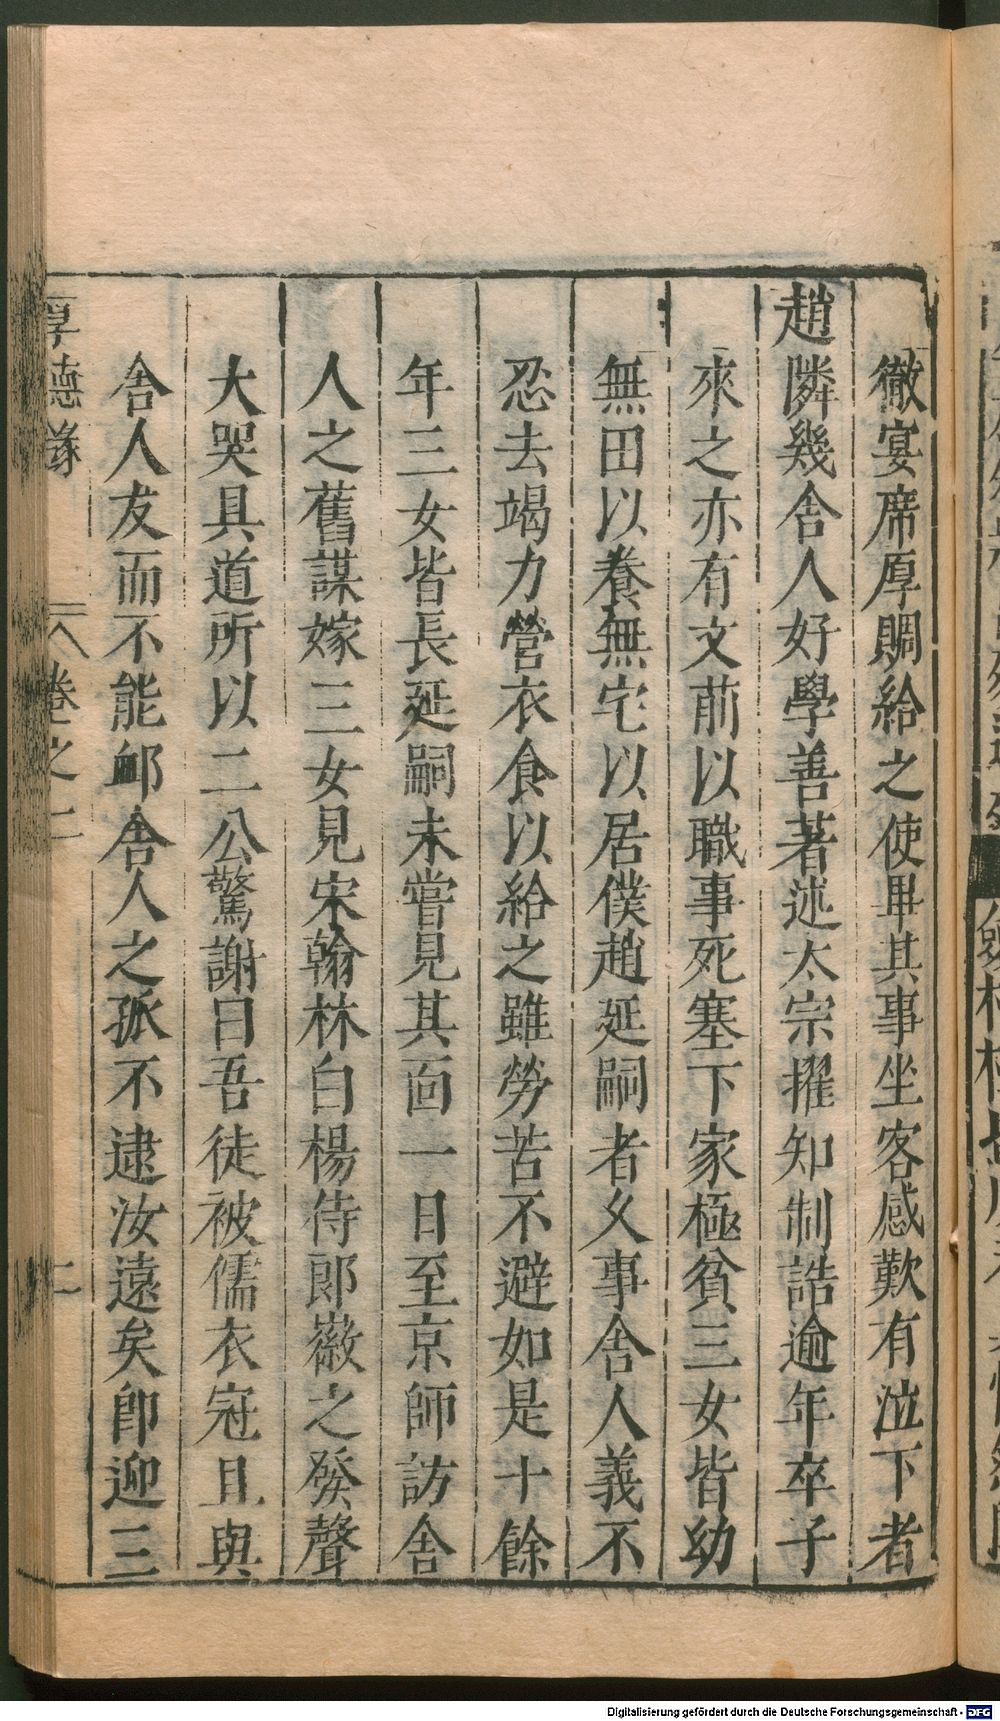 徹宴席厚賙給之使畢其事坐客感歎有泣下者
趙隣幾舍人好學善著述太宗擢知制誥逾年卒子
來之亦有文前以職事死塞下家極貧三女皆幼
無田以養無宅以居僕趙延嗣者久事舍人義不
忍去竭力營衣食以給之雖勞苦不避如是十餘
年三女皆長延嗣未嘗見其面一日至京師訪舍
人之舊謀嫁三女見宋翰林白楊侍郎徽之發聲
大哭具道所以二公驚謝曰吾徒被儒衣冠且與
舍人友而不能䘏舍人之孤不逮汝遠矣卽迎三
厚德錄 卷之二 二
Digitalisierung gefördert durch die Deutsche Forschungsgemeinschaft - DFG